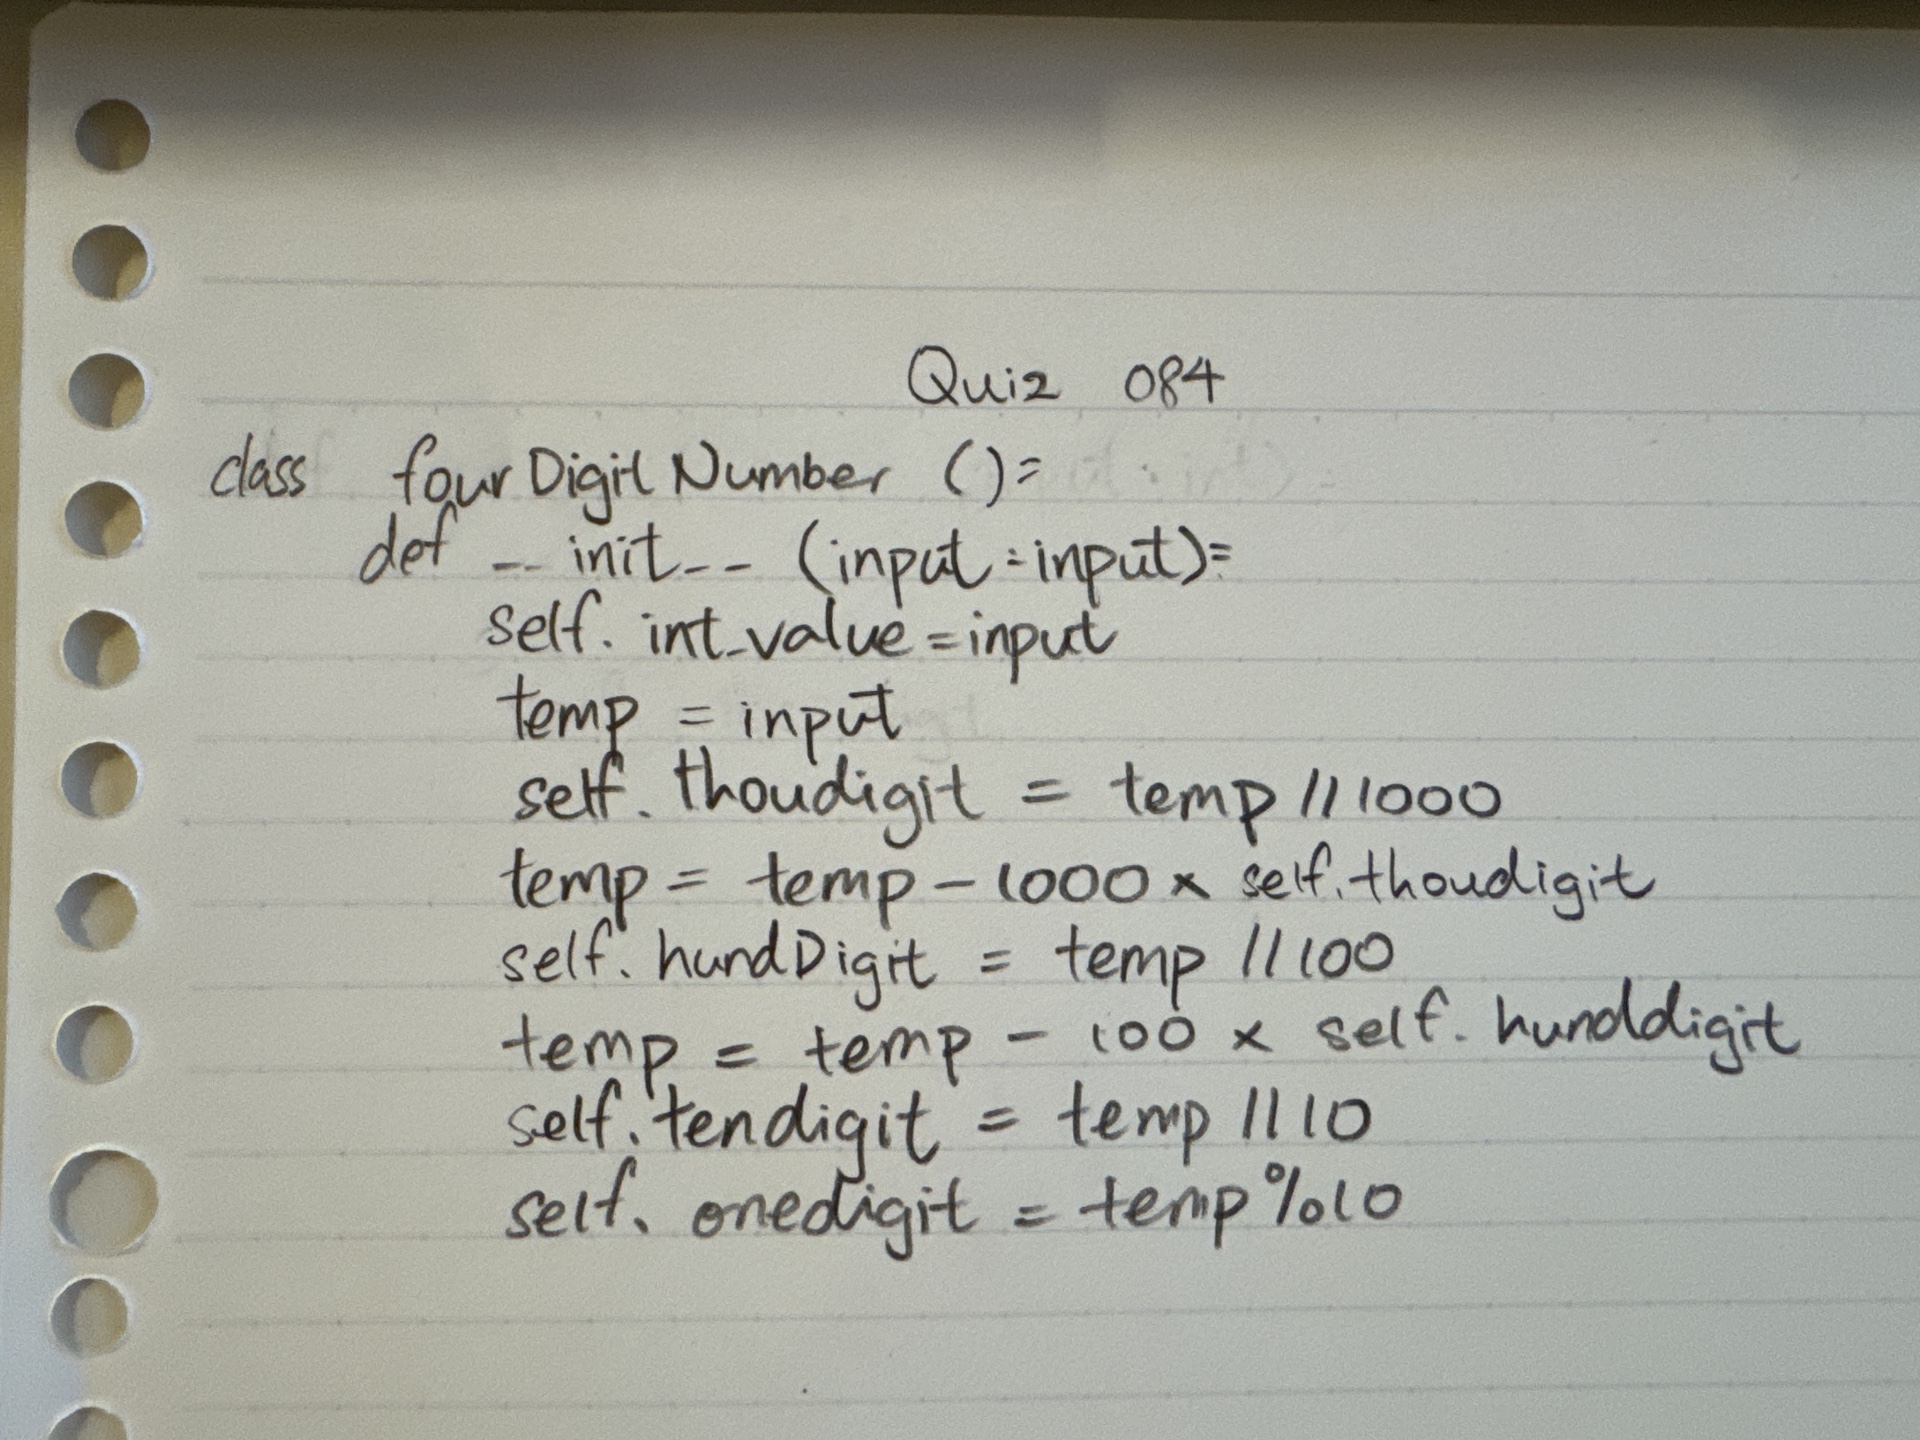 Quiz 084
class fourDigitNumber ():
def __init__ (input:input):
self.int_value = input
temp = input
self.thoudigit = temp // 1000
temp = temp - 1000 x self.thoudigit
self.hundDigit = temp // 100
temp = temp - 100 x self.hunddigit
self.tendigit = temp // 10
self.onedigit = temp % 10